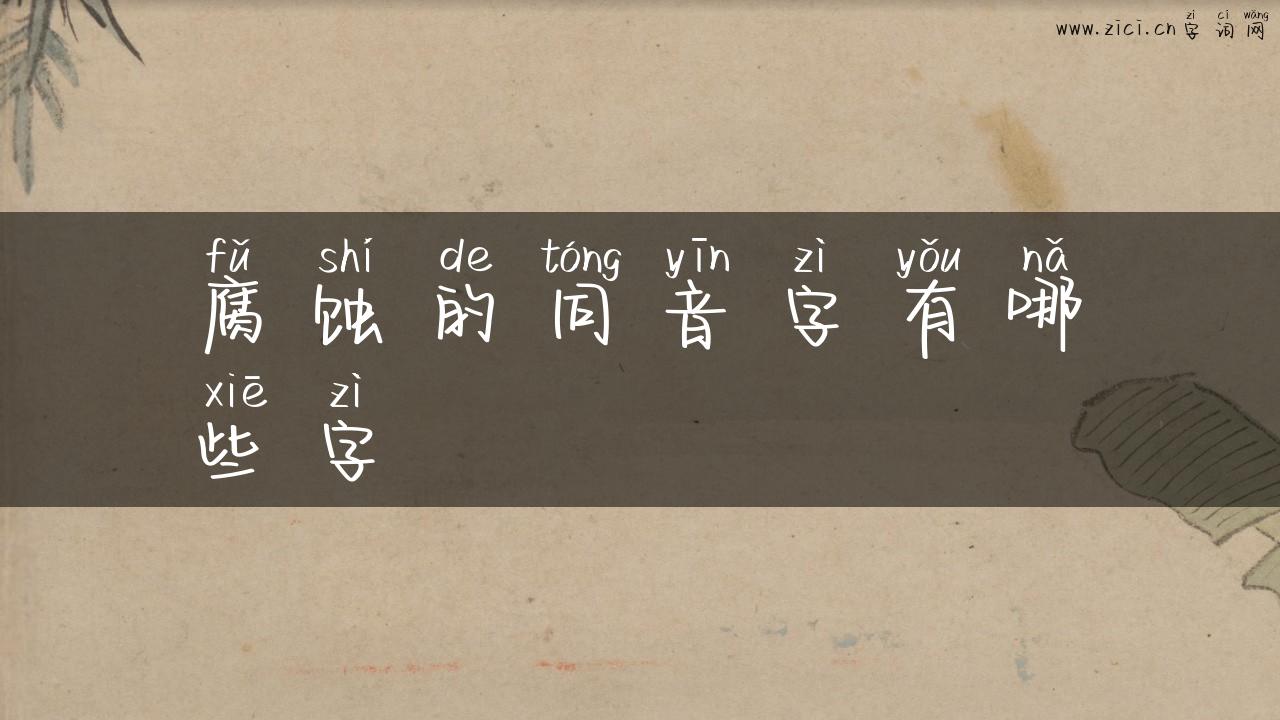 zì cí wǎng
www.zici.cn 字 词 网
fǔ shí de tóng yīn zì yǒu nǎ
腐 蚀 的 同 音 字 有 哪
xiē zì
些 字